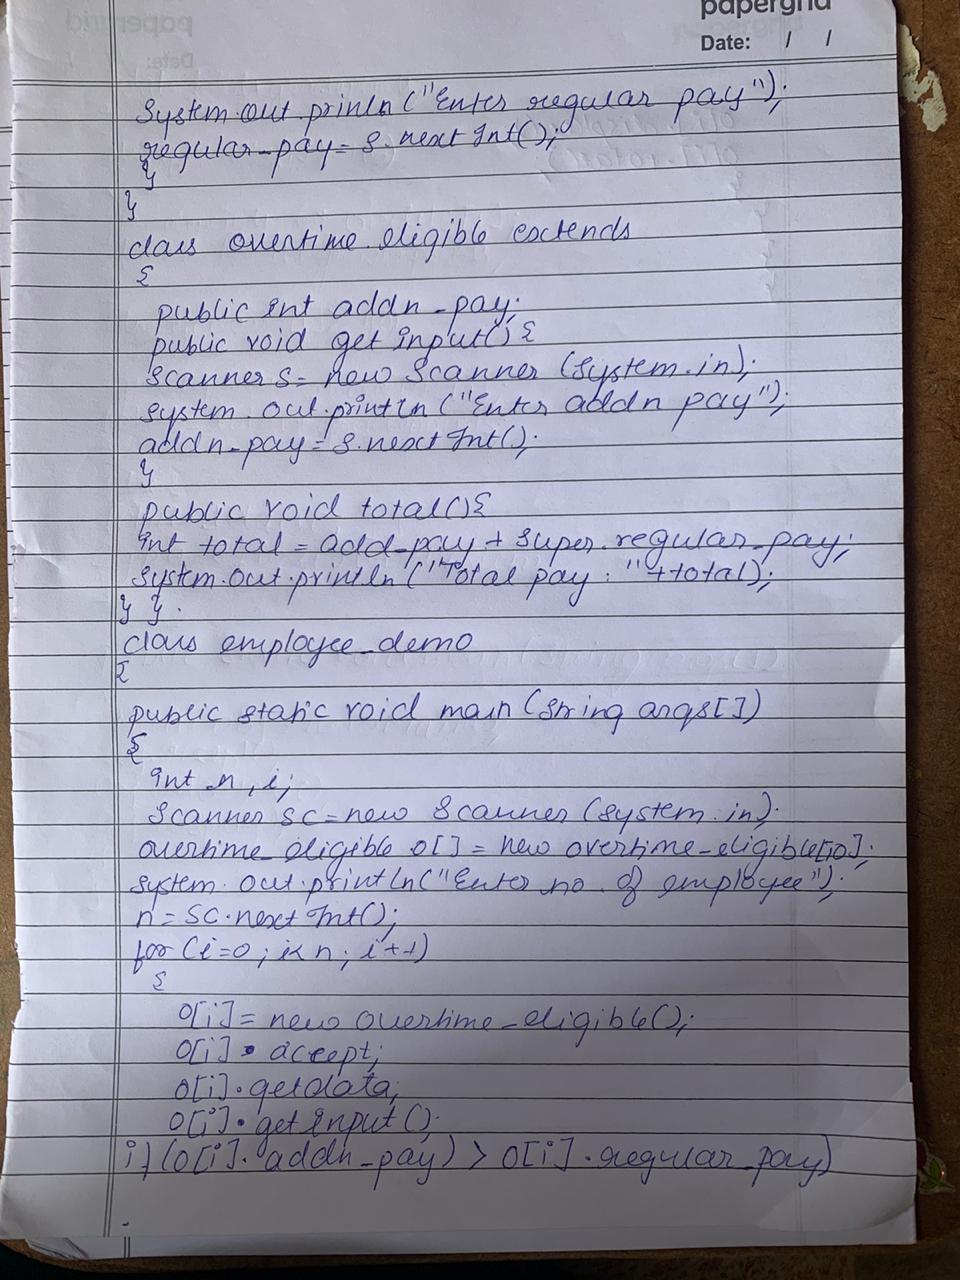 papergrid
Date: / /
System.out.println ("Enter regular pay");
regular_pay= s.next Int();
}
}
class overtime_eligible extends
{
public int addn_pay;
public void get input() {
Scanner s= new Scanner (System.in);
System.out.println ("Enter addn pay");
addn_pay= s.next Int();
}
public void total(){
int total = add_pay + super.regular_pay;
System.out.println ("Total pay : "+total);
} }
class employee_demo
{
public static void main (String args[])
{
int n, i;
Scanner sc=new Scanner (System.in);
overtime_eligible o[] = new overtime_eligible[10];
System.out.println("Enter no. of employee");
n= sc.next Int();
for (i=0; i<n; i++)
{
o[i]= new overtime_eligible();
o[i].accept;
o[i].getdata;
o[i].get input();
if (o[i].addn_pay) > o[i].regular_pay)